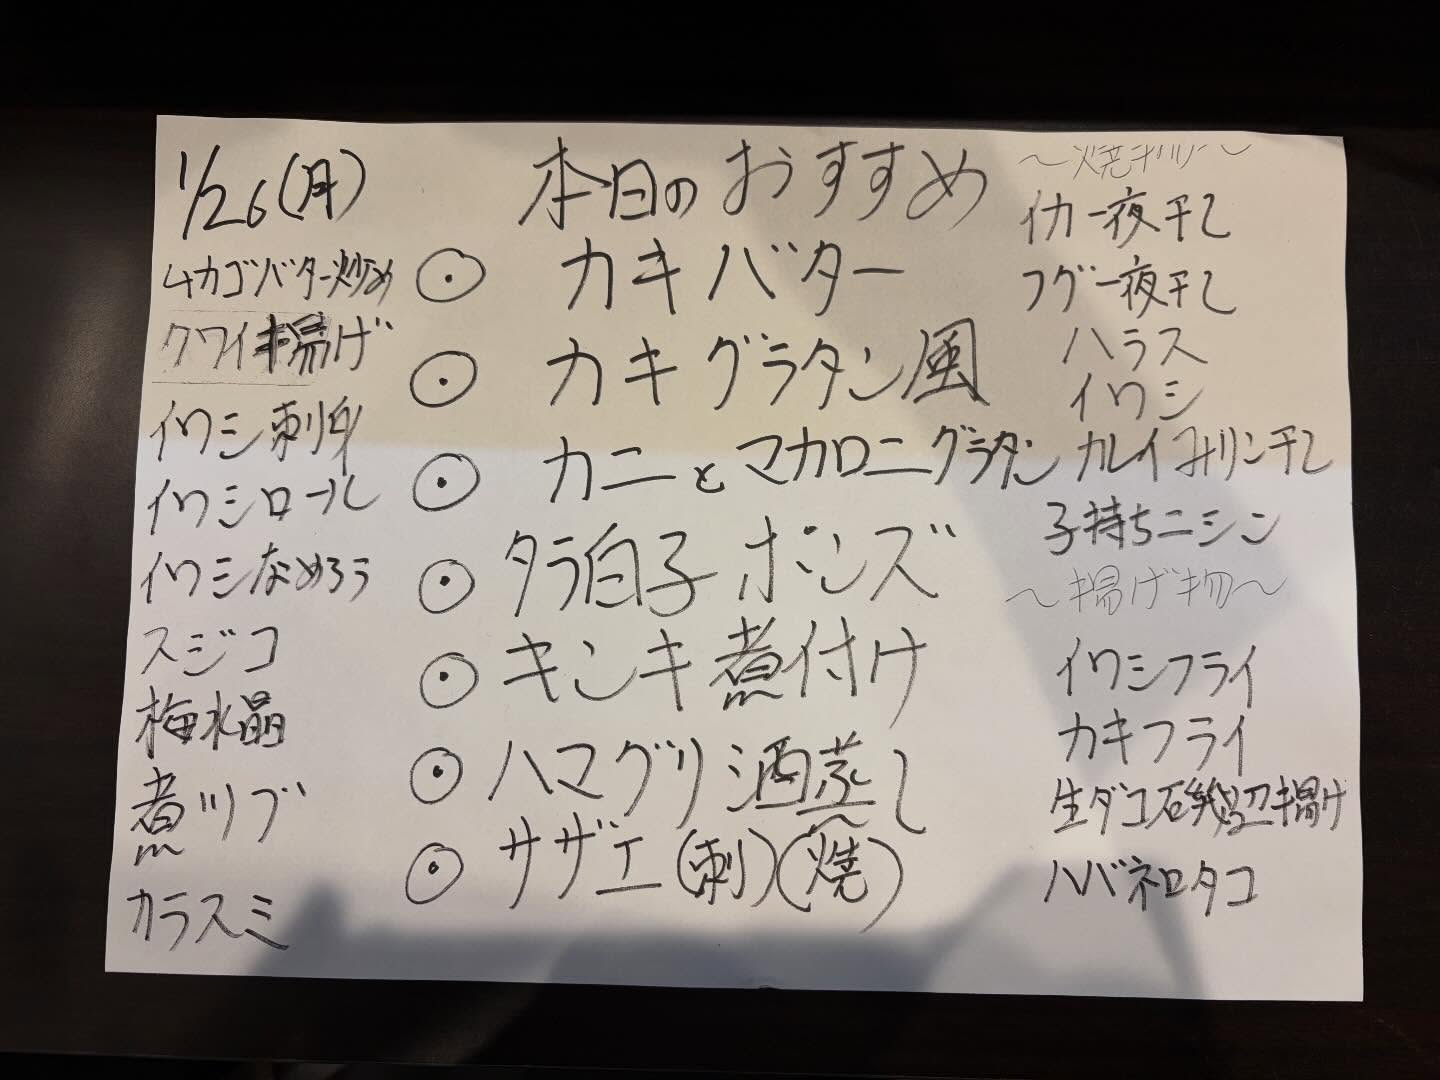 1/26(月)
ムカゴバター炒め
クワイ揚げ
イワシ刺身
イワシロール
イワシなめろう
スジコ
梅水晶
煮ツブ
カラスミ
本日のおすすめ
⦿ カキバター
⦿ カキグラタン風
⦿ カニとマカロニグラタン
⦿ タラ白子ポンズ
⦿ キンキ煮付け
⦿ ハマグリ酒蒸し
⦿ サザエ(刺)(焼)
〜焼物〜
イカ一夜干し
フグ一夜干し
ハラス
イワシ
カレイみリン干し
子持ちニシン
〜揚げ物〜
イワシフライ
カキフライ
生ダコ磯辺揚げ
ハバネロタコ